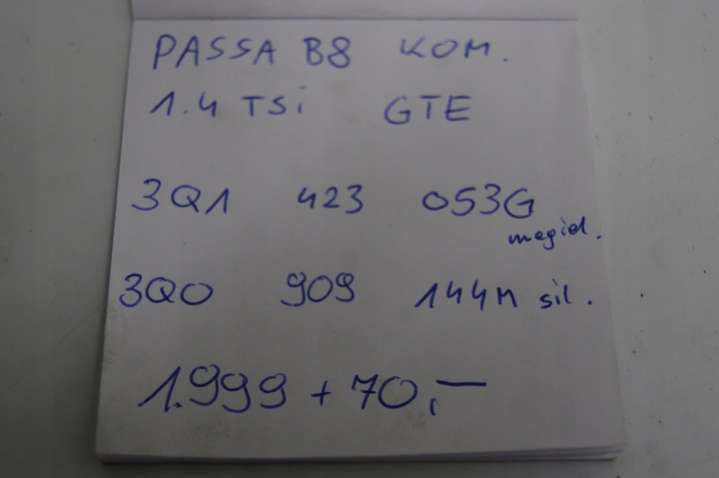 PASSA B8 KOM.
1.4 TSi GTE
3Q1 423 053G
magiel.
3Q0 909 144M sil.
1.999 + 70,-